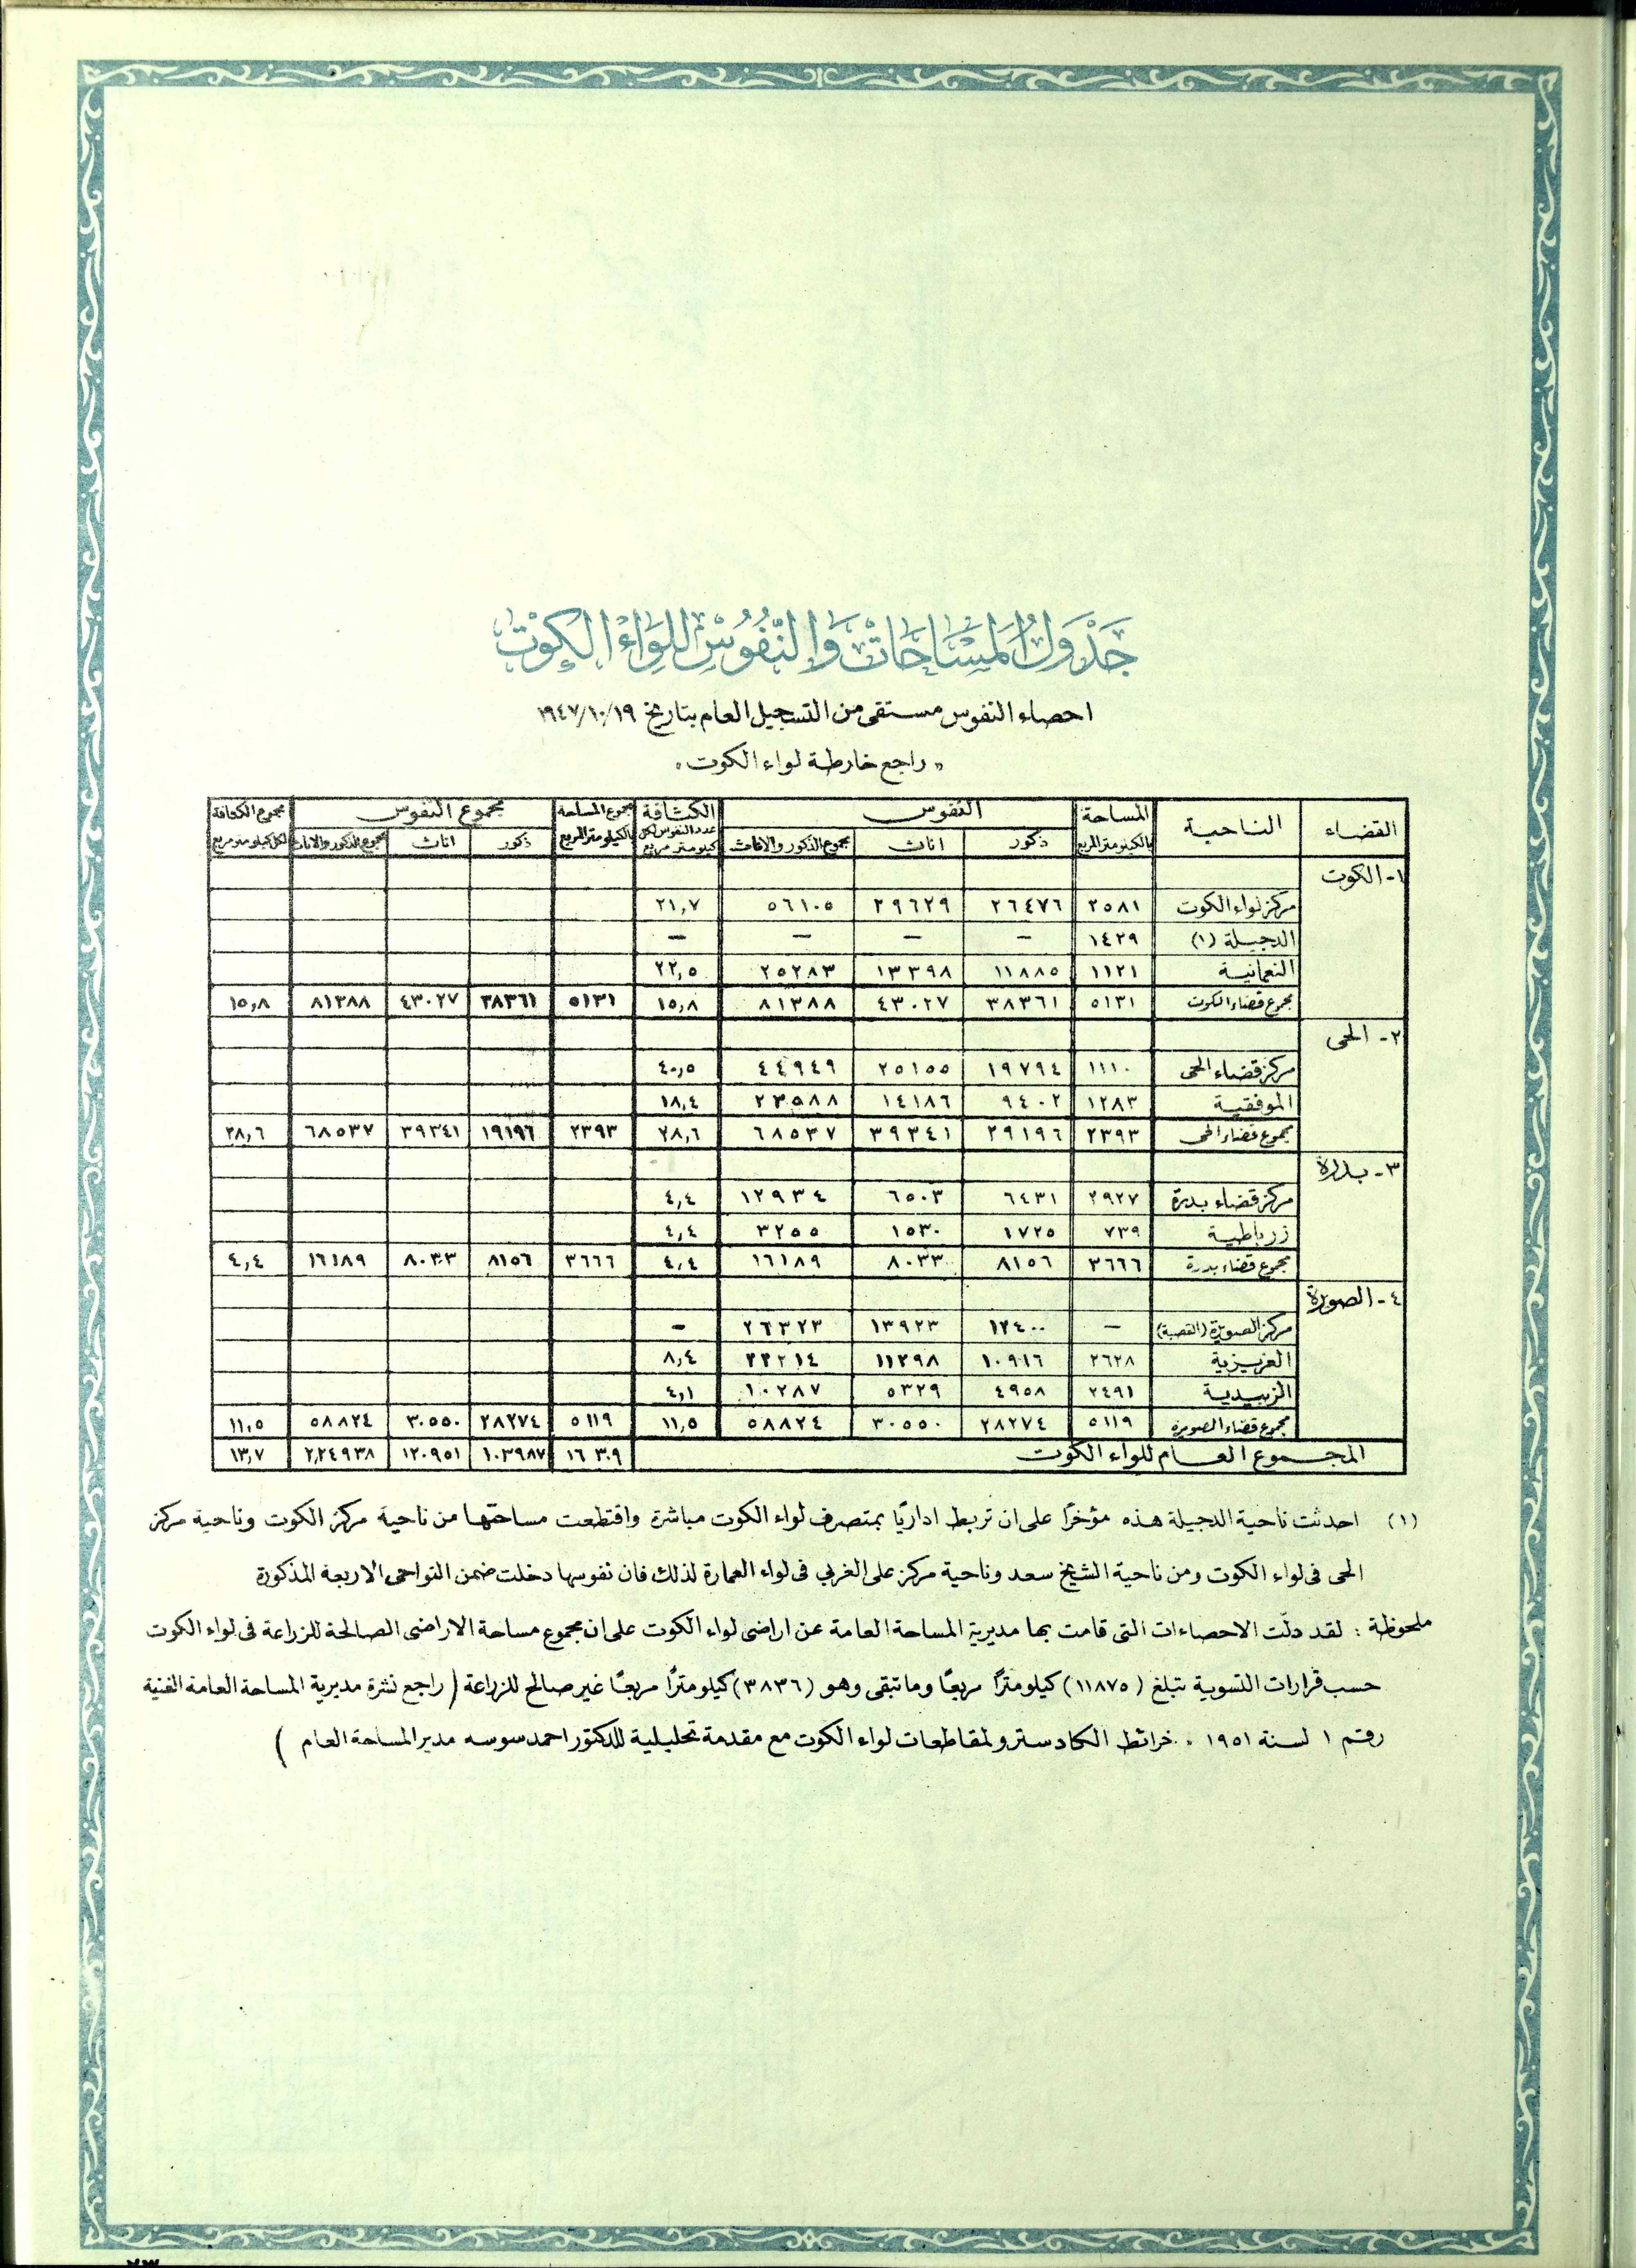 جَدْوَلُ المَسَاحَاتْ وَالنُّفُوسْ لِلِوَاءِ الكُوتْ
احصاء النفوس مستقى من التسجيل العام بتاريخ ١٩٤٧/١٠/١٩
« راجع خارطة لواء الكوت »
القضاء الناحية المساحة بالكيلومتر المربع النفوس ذكور اناث مجموع الذكور والاناث الكثافة عدد النفوس لكل كيلومتر مربع مجموع المساحة بالكيلومتر المربع مجموع النفوس ذكور اناث مجموع الذكور والاناث مجموع الكثافة لكل كيلومتر مربع
١- الكوت
مركز لواء الكوت ٢٥٨١ ٢٦٤٧٦ ٢٩٦٢٩ ٥٦١٠٥ ٢١,٧
الدجيلة (١) ١٤٢٩ — — — —
النعمانية ١١٢١ ١١٨٨٥ ١٣٣٩٨ ٢٥٢٨٣ ٢٢,٥
مجموع قضاء الكوت ٥١٣١ ٣٨٣٦١ ٤٣٠٢٧ ٨١٣٨٨ ١٥,٨ ٥١٣١ ٣٨٣٦١ ٤٣٠٢٧ ٨١٣٨٨ ١٥,٨
٢- الحى
مركز قضاء الحى ١١١٠ ١٩٧٩٤ ٢٥١٥٥ ٤٤٩٤٩ ٤٠,٥
الموفقية ١٢٨٣ ٩٤٠٢ ١٤١٨٦ ٢٣٥٨٨ ١٨,٤
مجموع قضاء الحى ٢٣٩٣ ٢٩١٩٦ ٣٩٣٤١ ٦٨٥٣٧ ٢٨,٦ ٢٣٩٣ ١٩١٩٦ ٣٩٣٤١ ٦٨٥٣٧ ٢٨,٦
٣- بدرة
مركز قضاء بدرة ٢٩٢٧ ٦٤٣١ ٦٥٠٣ ١٢٩٣٤ ٤,٤
زرباطية ٧٣٩ ١٧٢٥ ١٥٣٠ ٣٢٥٥ ٤,٤
مجموع قضاء بدرة ٣٦٦٦ ٨١٥٦ ٨٠٣٣ ١٦١٨٩ ٤,٤ ٣٦٦٦ ٨١٥٦ ٨٠٣٣ ١٦١٨٩ ٤,٤
٤- الصويرة
مركز الصويرة (القصبة) — ١٢٤٠٠ ١٣٩٢٣ ٢٦٣٢٣ —
العزيزية ٢٦٢٨ ١٠٩١٦ ١١٢٩٨ ٢٢٢١٤ ٨,٤
الزبيدية ٢٤٩١ ٤٩٥٨ ٥٣٢٩ ١٠٢٨٧ ٤,١
مجموع قضاء الصويرة ٥١١٩ ٢٨٢٧٤ ٣٠٥٥٠ ٥٨٨٢٤ ١١,٥ ٥١١٩ ٢٨٢٧٤ ٣٠٥٥٠ ٥٨٨٢٤ ١١,٥
المجموع العام للواء الكوت ١٦٣٠٩ ١٠٣٩٨٧ ١٢٠٩٥١ ٢٢٤٩٣٨ ١٣,٧
(١) احدثت ناحية الدجيلة هذه مؤخرًا على ان تربط اداريًا بمتصرف لواء الكوت مباشرة واقتطعت مساحتها من ناحية مركز الكوت وناحية مركز
الحى فى لواء الكوت ومن ناحية الشيخ سعد وناحية مركز على الغربي فى لواء العمارة لذلك فان نفوسها دخلت ضمن النواحى الاربعة المذكورة
ملحوظة : لقد دلّت الاحصاءات التى قامت بها مديرية المساحة العامة عن اراضى لواء الكوت على ان مجموع مساحة الاراضى الصالحة للزراعة فى لواء الكوت
حسب قرارات التسوية تبلغ (١١٨٧٥) كيلومترًا مربعًا وما تبقى وهو (٣٨٣٦) كيلومترًا مربعًا غير صالح للزراعة ( راجع نشرة مديرية المساحة العامة الفنية
رقم ١ لسنة ١٩٥١ . خرائط الكادسترو لمقاطعات لواء الكوت مع مقدمة تحليلية للدكتور احمد سوسه مدير المساحة العام )